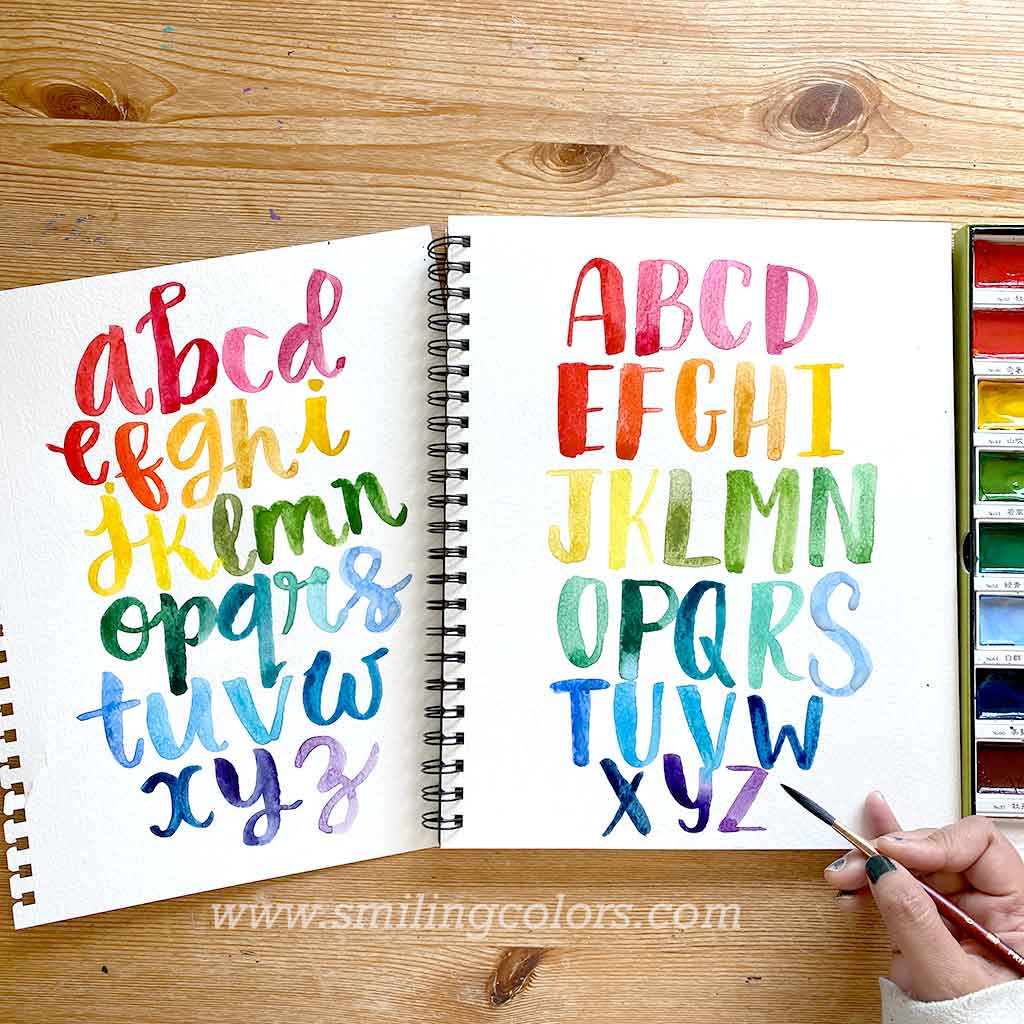 abcd
efghi
jklmn
opqrs
tuvw
xyz
ABCD
EFGHI
JKLMN
OPQRS
TUVW
XYZ
www.smilingcolors.com